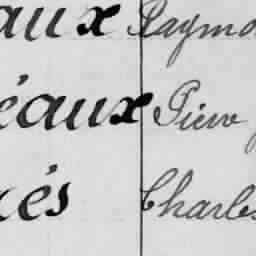 aux Raymo
éaux Pierre
és Charles